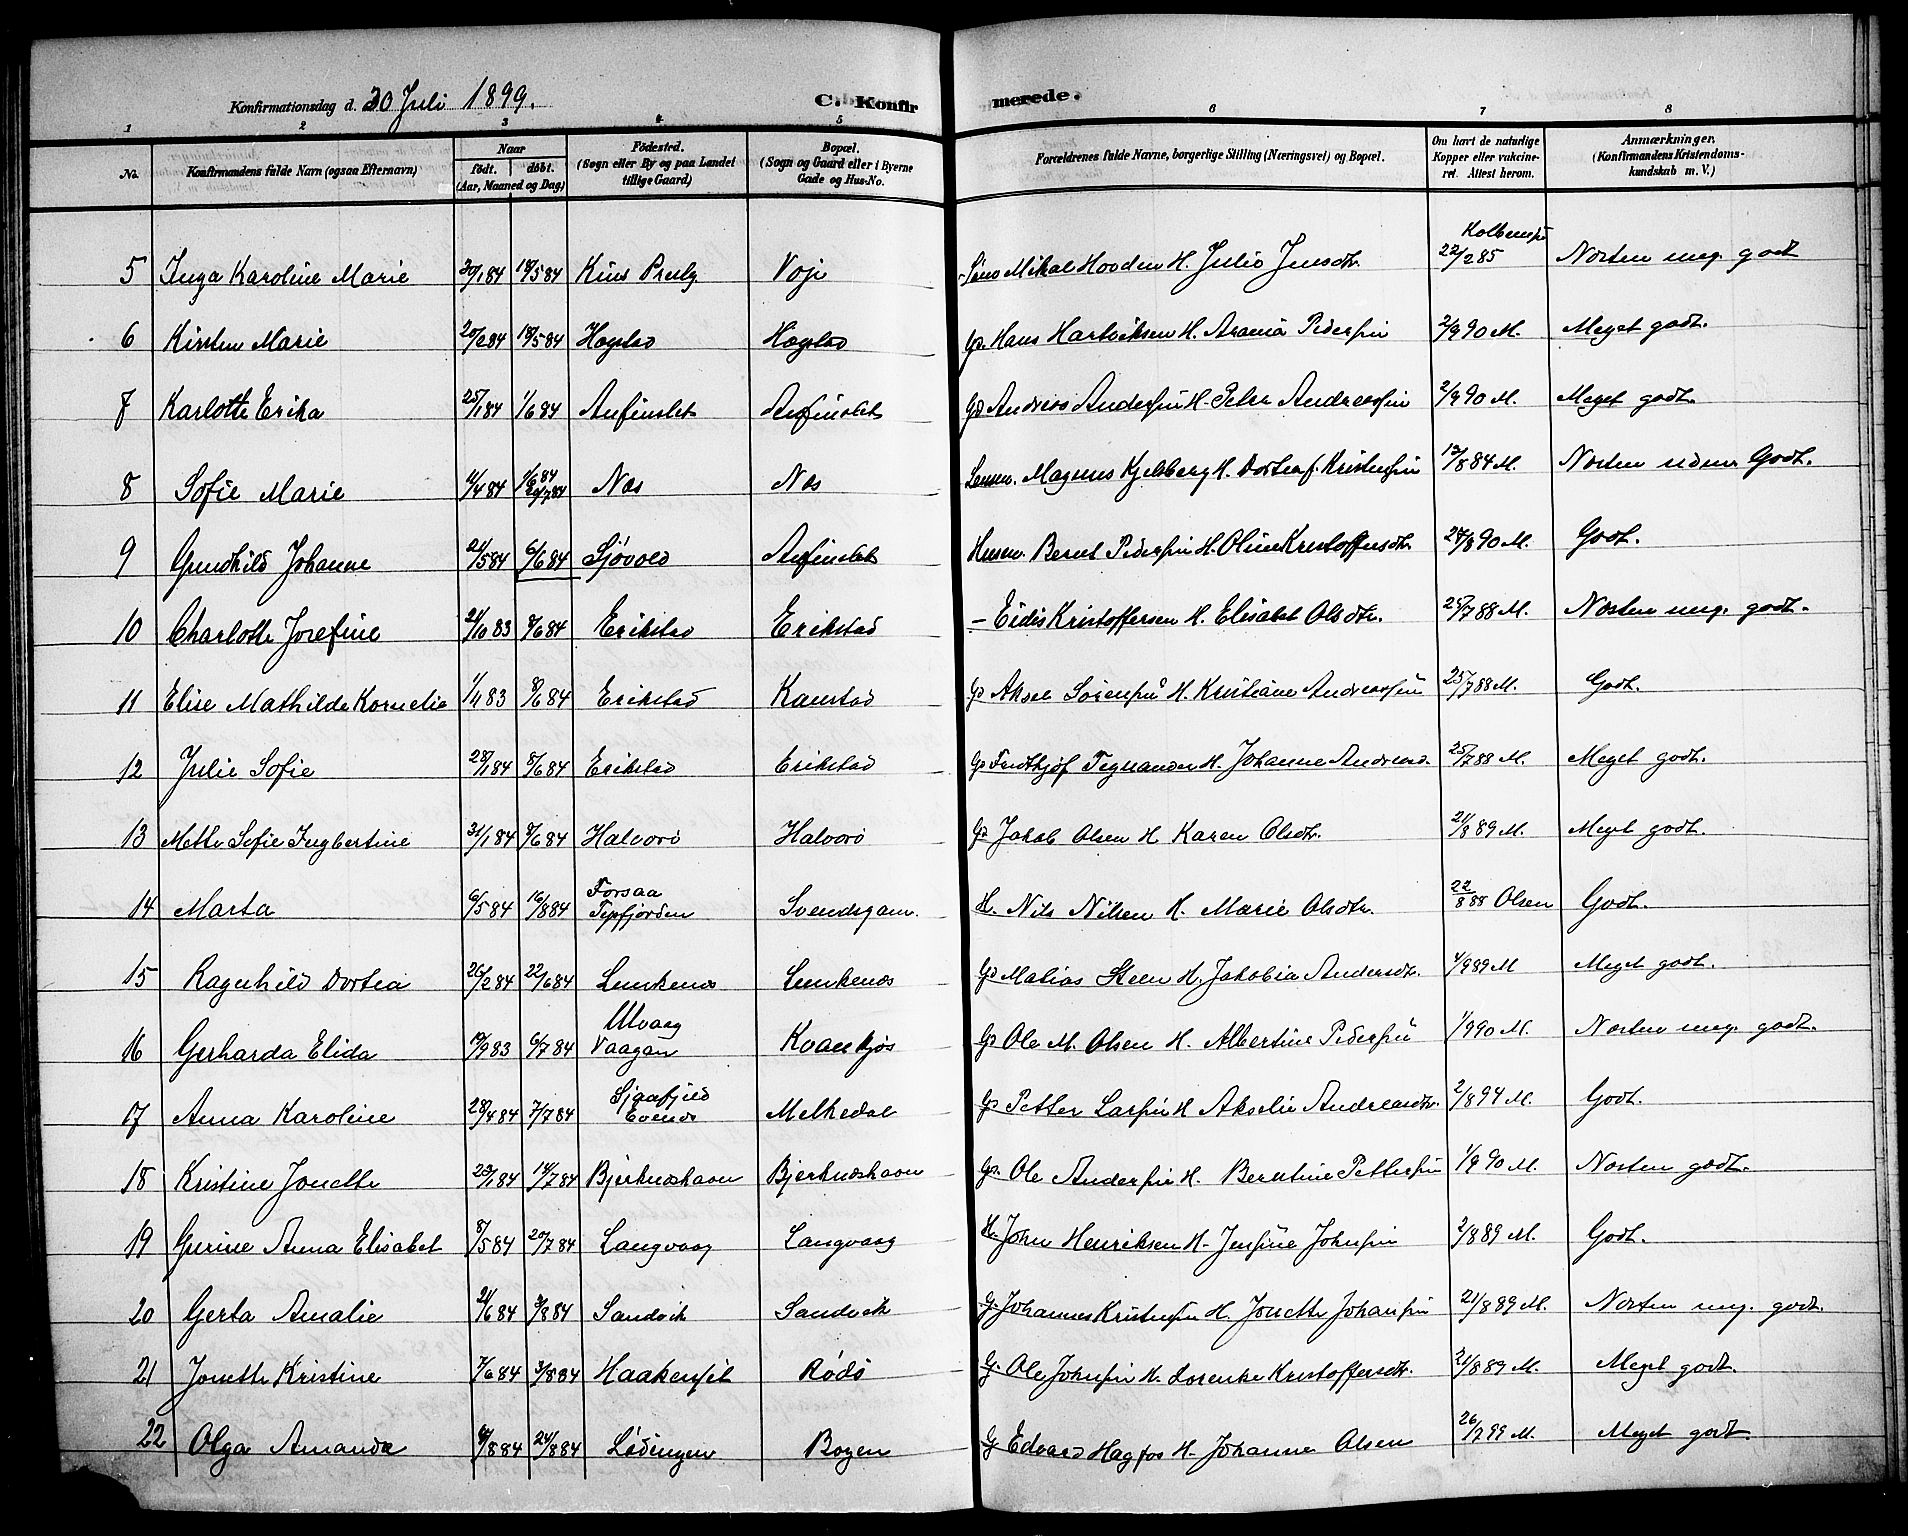 Konfirmationsdag d. 30 Juli 1899. C. Konfirmerede.
1 2 3 4 5 6 7 8
No. Konfirmandens fulde Navn (ogsaa Efternavn) Naar født. døbt. (Aar, Maaned og Dag) Fødested. (Sogn eller By og paa Landet tillige Gaard) Bopæl. (Sogn og Gaard eller i Byerne Gade og Hus-No. Forældrenes fulde Navne, borgerlige Stilling (Næringsvei) og Bopæl. Om havt de naturlige Kopper eller vakcineret. Attest herom. Anmærkninger. (Konfirmandens Kristendomskundskab m. V.)
5 Inga Karoline Marie 30/1 84 18/5 84 Voje Mikal H. Julie Jensdtr. 22/2 85 Næsten meg. godt
6 Kirsten Marie 20/2 84 18/5 84 Hogstad Hogstad Gd. Hans Hartviksen H. Pedersen 2/9 90 M. Meget godt.
7 Karlotte Erika 25/1 84 1/6 84 Anfinslet Anfinslet Gd Andreas Andersen H. Petra Andreassen 2/9 90 M. Meget godt.
8 Sofie Marie 11/4 84 1/6 84 Næs Næs Lensm. Magnus Kjelsberg H. Kristensen 13/8 84 M. Næsten Godt.
9 Gundhild Johanne 21/5 84 6/6 84 Sjøvold Anfinslet Husm. Bernt Pedersen H. Oline Kristoffersdtr. 27/8 90 M. Godt.
10 Charlotte Josefine 21/10 83 8/6 84 Erikstad Erikstad – Eidis Kristoffersen H. Elisabet Olsdtr. 25/7 88 M. Næsten meg. godt.
11 Elise Mathilde Kornelia 1/11 83 8/6 84 Erikstad Kanstad Gd Aksel Sørensen H. Kristiane Andreassen 25/7 88 M. Godt.
12 Julie Sofie 28/1 84 8/6 84 Erikstad Erikstad Gd Fridthjof Tegnander H. Johanne Andreasd. 25/7 88 M. Meget godt.
13 Mette Sofie Ingbertine 31/1 84 8/6 84 Halvorø Halvorø Gd Jakob Olsen H Karen Olsdtr. 21/8 89 M. Meget godt.
14 Marta 6/5 84 16/8 84 Forsaa Tysfjorden Svendsgam. H. Nils Nilsen H. Marie Olsdtr. 22/8 88 Olsen Godt.
15 Ragnhild Dortea 26/2 84 22/6 84 Lenkenæs Lenkenæs Gd Matias Steen H. Jakobia Andersdtr. 4/9 89 M Meget godt.
16 Gerharda Elida 19/9 83 6/7 84 Ulvaag Vaagan Kvankjøs Gd Ole M. Olsen H. Albertine Pedersen 1/9 90 M. Næsten meg. godt.
17 Anna Karoline 28/4 84 7/7 84 Sjaafjeld Evenes Melkedal Gd Petter Larsen H Akselie Andreasdtr. 2/8 94 M. Godt.
18 Kristine Jonette 28/1 84 14/7 84 Bjerknæshavn Bjerknæshavn Gd. Ole Andersen H. Berntine Pettersen 1/9 90 M. Næsten godt.
19 Gurine Anna Elisabet 8/5 84 20/7 84 Langvaag Langvaag H. John Henriksen H. Jensine Johnsen 2/8 89 M. Godt.
20 Gerta Amalie 21/6 84 3/8 84 Sandvik Sandvik G. Johannes Kristensen H. Jonette Johansen 21/8 89 M. Næsten meg. godt.
21 Jonette Kristine 7/6 84 3/8 84 Haakensjet Rødø G. Ole Johnsen H. Lorentse Kristoffersdtr. 21/8 89 M. Meget godt.
22 Olga Amanda 6/8 84 24/8 84 Lødingen Bogen G Edvard Hagfos H. Johanne Olsen 26/7 99 M. Meget godt.